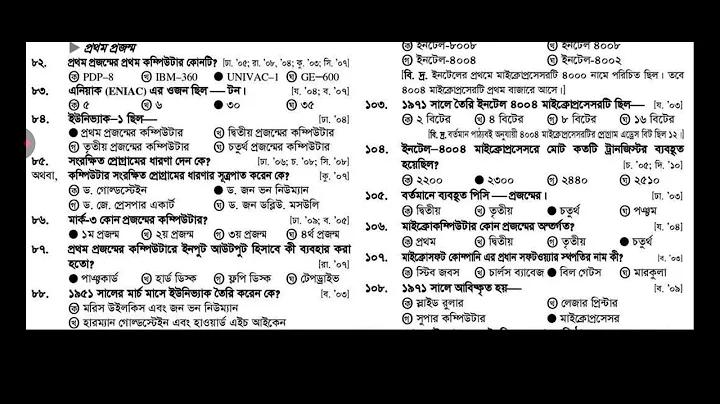 ▶ প্রথম প্রজন্ম
৮২. প্রথম প্রজন্মের প্রথম কম্পিউটার কোনটি? [ঢা. '০৫; রা. '০৮, '০৪; কু. '০৩; সি. '০৭]
ক PDP–8 খ IBM–360 ● UNIVAC–1 ঘ GE–600
৮৩. এনিয়াক (ENIAC) এর ওজন ছিল — টন। [য. '০৪; ব. '০৭]
ক ৫ খ ৬ ● ৩০ ঘ ৩৫
৮৪. ইউনিভ্যাক–১ ছিল— [ঢা. '০৪]
● প্রথম প্রজন্মের কম্পিউটার খ দ্বিতীয় প্রজন্মের কম্পিউটার
গ তৃতীয় প্রজন্মের কম্পিউটার ঘ চতুর্থ প্রজন্মের কম্পিউটার
৮৫. সংরক্ষিত প্রোগ্রামের ধারণা দেন কে? [ঢা. '০৬; চ. '০৮; সি. '০৮]
অথবা, কম্পিউটার সংরক্ষিত প্রোগ্রামের ধারণার সূত্রপাত করেন কে? [কু. '০৭]
ক ড. গোল্ডস্টেইন ● ড. জন ভন নিউম্যান
গ ড. জে. প্রেসপার একার্ট ঘ ড. জন ডব্লিউ. মসউলি
৮৬. মার্ক-৩ কোন প্রজন্মের কম্পিউটার? [ঢা. '০৯; ব. '০৫]
● ১ম প্রজন্ম খ ২য় প্রজন্ম গ ৩য় প্রজন্ম ঘ ৪র্থ প্রজন্ম
৮৭. প্রথম প্রজন্মের কম্পিউটারে ইনপুট আউটপুট হিসাবে কী ব্যবহার করা
হতো? [রা. '০৭]
● পাঞ্চকার্ড খ হার্ড ডিস্ক গ ফ্লপি ডিস্ক ঘ টেপড্রাইভ
৮৮. ১৯৫১ সালের মার্চ মাসে ইউনিভ্যাক তৈরি করেন কে? [ব. '০৩]
ক মরিস উইলকিস এবং জন ভন নিউম্যান
খ হারম্যান গোল্ডস্টেইন এবং হাওয়ার্ড এইচ আইকেন
ক ইনটেল-৮০০৮ খ ইনটেল ৪০০৮
গ ইনটেল-৪০০৪ ঘ ইনটেল-৪০০২
[বি. দ্র. ইনটেলের প্রথমে মাইক্রোপ্রসেসরটি ৪০০০ নামে পরিচিত ছিল। তবে
৪০০৪ মাইক্রোপ্রসেসরটি প্রথম বাজারে আসে।]
১০৩. ১৯৭১ সালে তৈরি ইনটেল ৪০০৪ মাইক্রোপ্রসেসরটি ছিল— [য. '০৩]
ক ২ বিটের ● ৪ বিটের গ ৮ বিটের ঘ ১৬ বিটের
[বি. দ্র. বর্তমান পাঠ্যবই অনুযায়ী ৪০০৪ মাইক্রোপ্রসেসরটির প্রোগ্রাম এড্রেস বিট ছিল ১২।]
১০৪. ইনটেল–৪০০৪ মাইক্রোপ্রসেসরে মোট কতটি ট্রানজিস্টর ব্যবহৃত
হয়েছিল? [চ. '০৫; দি. '১০]
ক ২২০০ ● ২৩০০ গ ২৪৪০ ঘ ২৫১০
১০৫. বর্তমানে ব্যবহৃত পিসি — প্রজন্মের। [ঢা. '০৩]
ক দ্বিতীয় খ তৃতীয় ● চতুর্থ ঘ পঞ্চম
১০৬. মাইক্রোকম্পিউটার কোন প্রজন্মের অন্তর্গত? [য. '০৪]
ক প্রথম খ দ্বিতীয় গ তৃতীয় ● চতুর্থ
১০৭. মাইক্রোসফট কোম্পানি এর প্রধান সফটওয়্যার স্থপতির নাম কী? [ব. '০৩]
ক স্টিব জবস খ চার্লস ব্যাবেজ ● বিল গেটস ঘ মারকুলা
১০৮. ১৯৭১ সালে আবিষ্কৃত হয়— [ব. '০৯]
ক স্লাইড রুলার খ লেজার প্রিন্টার
গ সুপার কম্পিউটার ● মাইক্রোপ্রসেসর